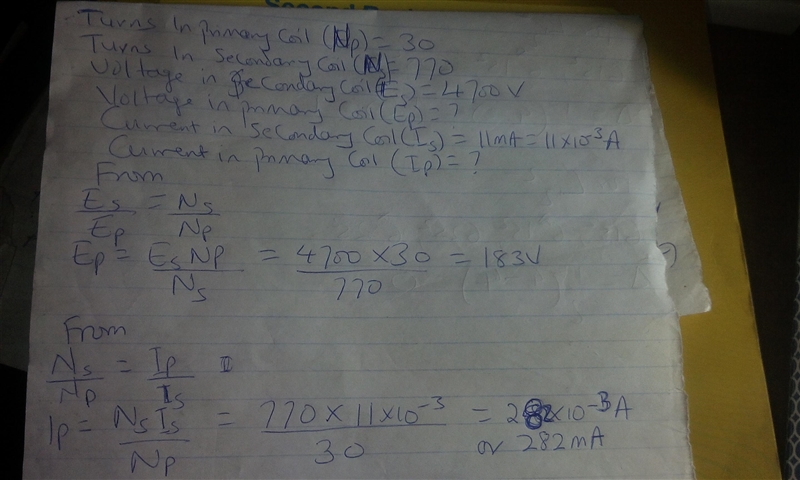 Turns in primary coil (Np) = 30
Turns in secondary coil (Ns) = 770
Voltage in secondary coil (Es) = 4700 V
Voltage in primary coil (Ep) = ?
Current in secondary coil (Is) = 11mA = 11×10⁻³A
Current in primary coil (Ip) = ?
From
Es/Ep = Ns/Np
Ep = EsNp/Ns = 4700 × 30/770 = 183V
From
Ns/Np = Ip/Is
Ip = NsIs/Np = 770 × 11×10⁻³/30 = 282×10⁻³A
or 282mA